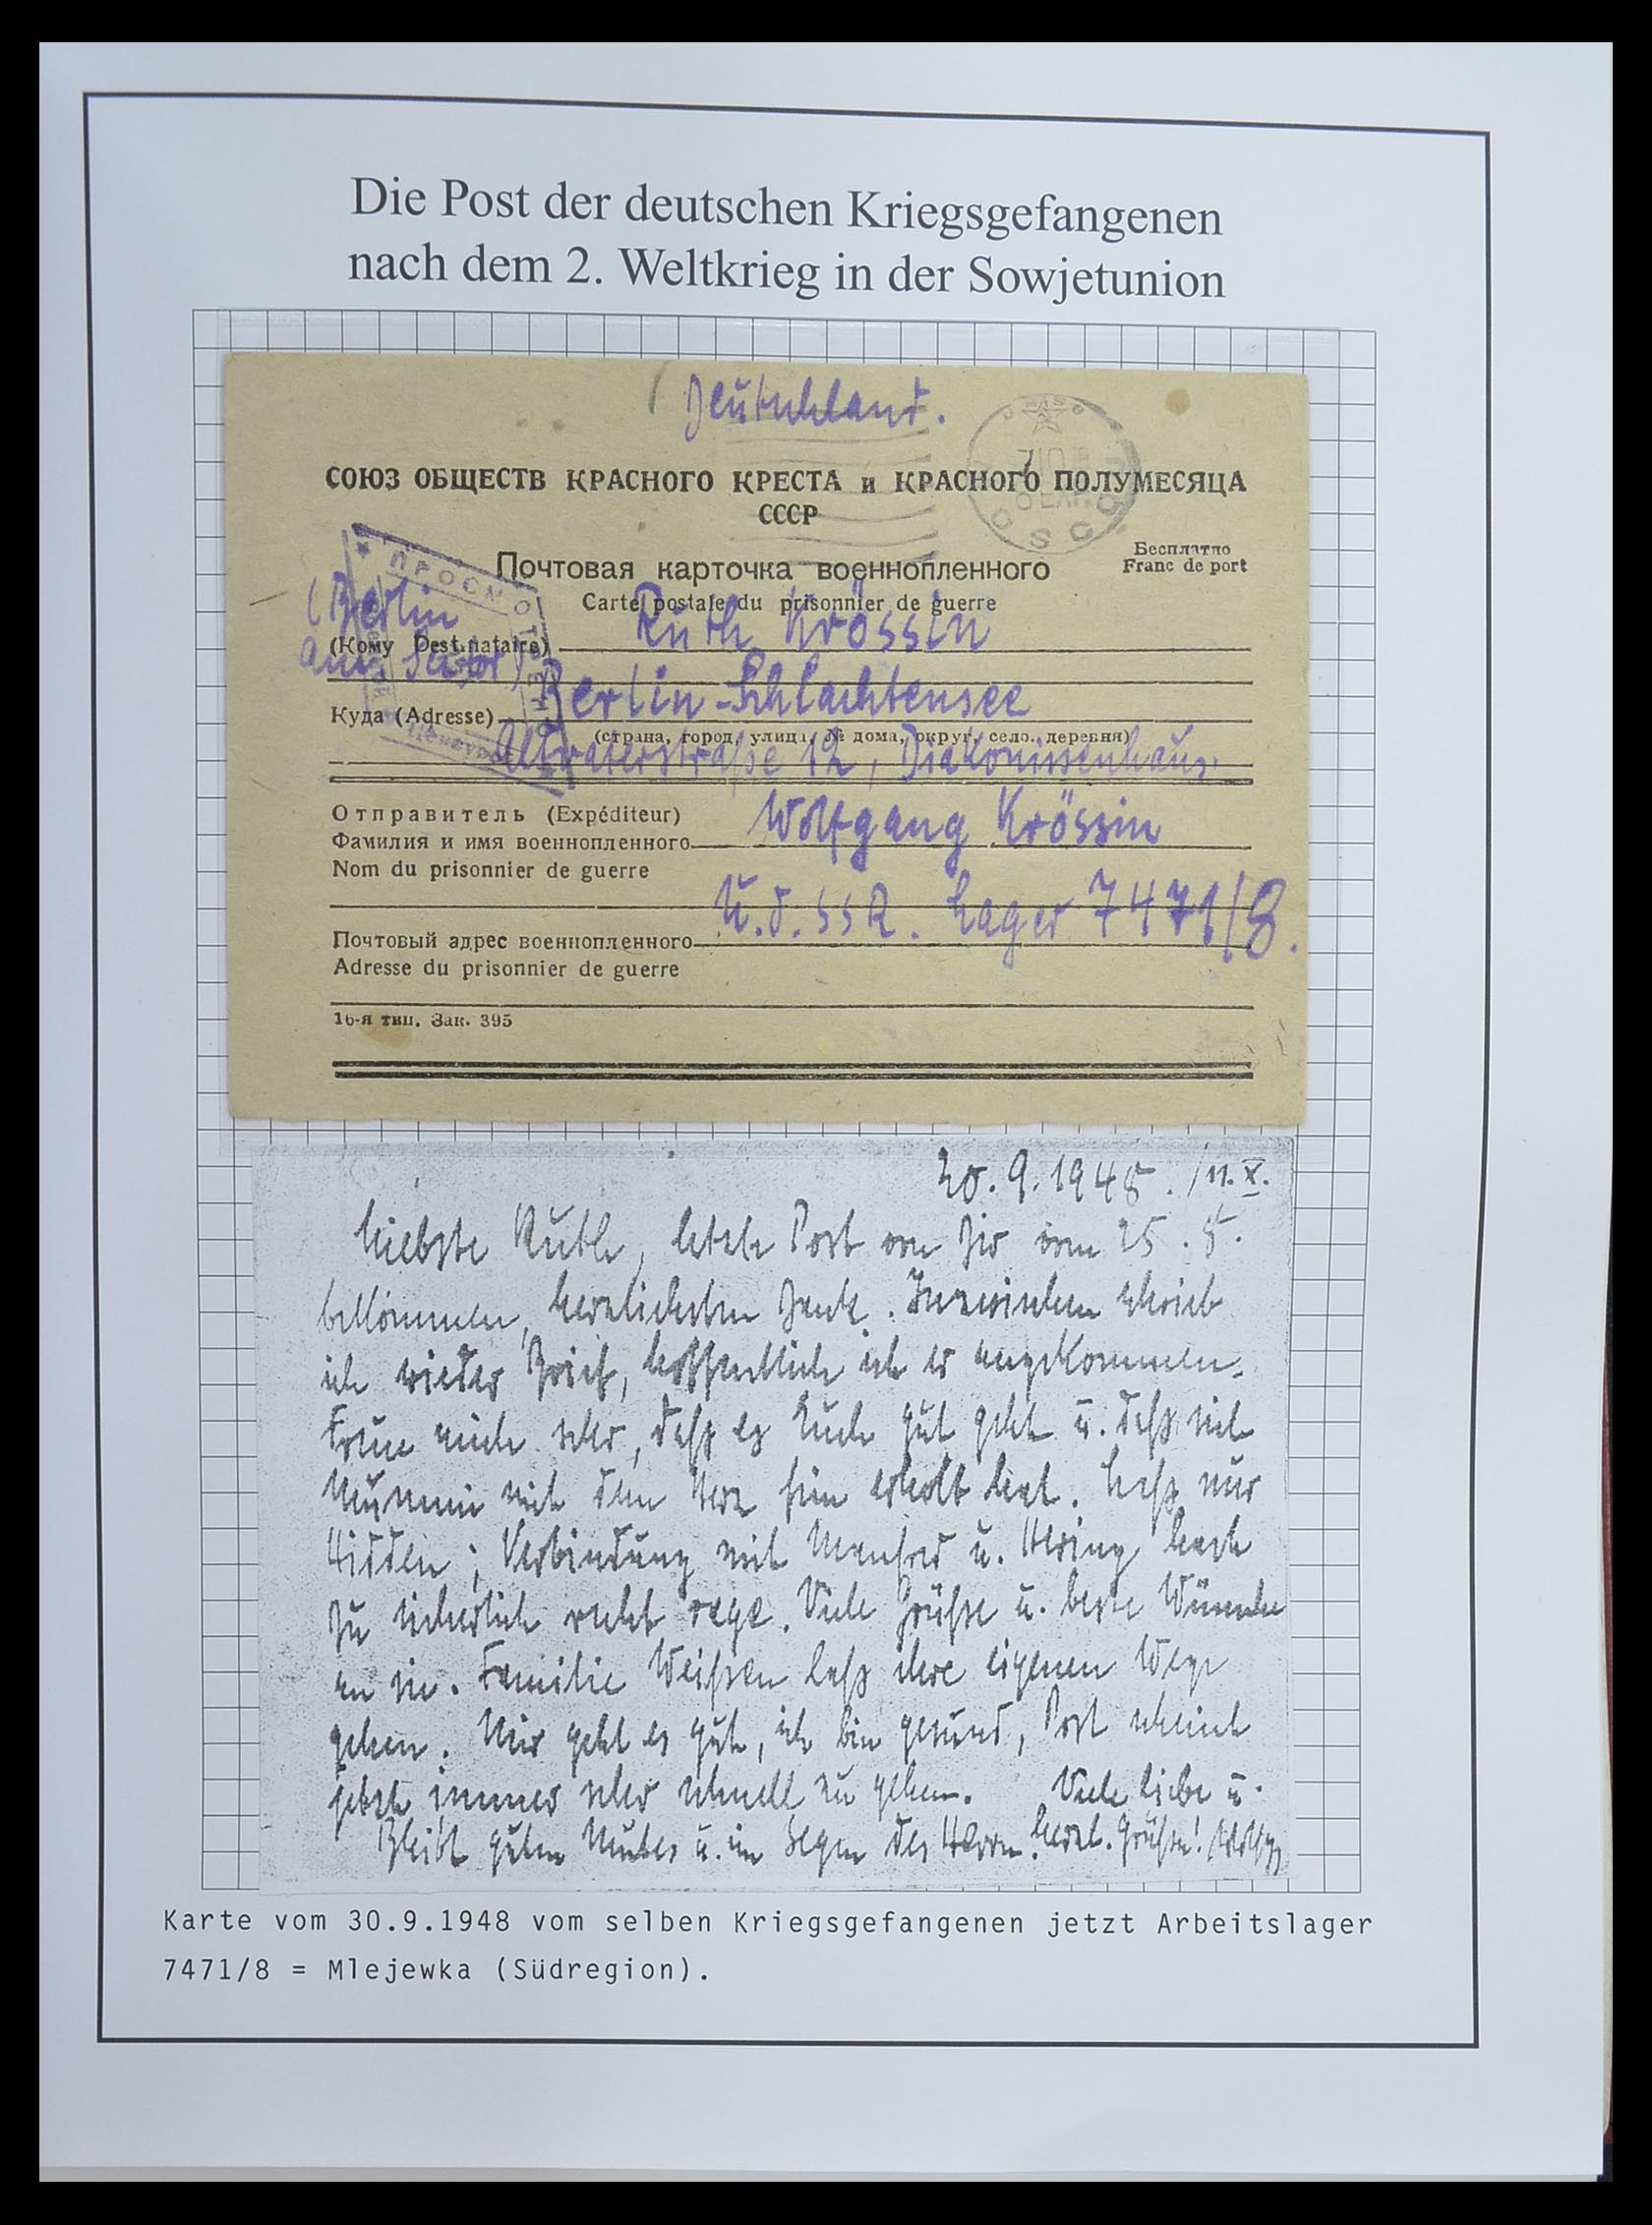 Die Post der deutschen Kriegsgefangenen
nach dem 2. Weltkrieg in der Sowjetunion
Deutschland.
СОЮЗ ОБЩЕСТВ КРАСНОГО КРЕСТА и КРАСНОГО ПОЛУМЕСЯЦА
СССР
Бесплатно
Franc de port
Почтовая карточка военнопленного
Carte postale du prisonnier de guerre
ПРОСМОТРЕНО
(Berlin
(Кому Destinataire) Ruth Krössin
am. Sector)
Куда (Adresse) Berlin-Schlachtensee
(страна, город, улица, № дома, округ, село, деревня)
12, Diakonissenhaus
Отправитель (Expéditeur)
Фамилия и имя военнопленного Wolfgang Krössin
Nom du prisonnier de guerre
Почтовый адрес военнопленного U.d.SSR. Lager 7471/8.
Adresse du prisonnier de guerre
16-я тип. Зак. 395
30.9.1948. /11.X.
Liebste Ruth, letzte Post von Dir vom 25.8.
bekommen, herzlichsten Dank. Inzwischen schrieb
ich wieder Brief, hoffentlich ist er angekommen.
Freue mich sehr, daß es Euch gut geht u. daß sich
Mummi mit dem Herz fein erholt hat. Laß nur
; Verbindung mit Manfred u. Hering hast
Du sicherlich recht rege. Viele Grüße u. beste Wünsche
an sie. Familie Weißen laß ihre eigenen Wege
gehen. Mir geht es gut, ich bin gesund, Post scheint
jetzt immer sehr schnell zu gehen. Viele liebe u.
Bleibt guten Mutes u. im Segen des Herrn. herzl. Grüße! Wolfg.
Karte vom 30.9.1948 vom selben Kriegsgefangenen jetzt Arbeitslager
7471/8 = Mlejewka (Südregion).